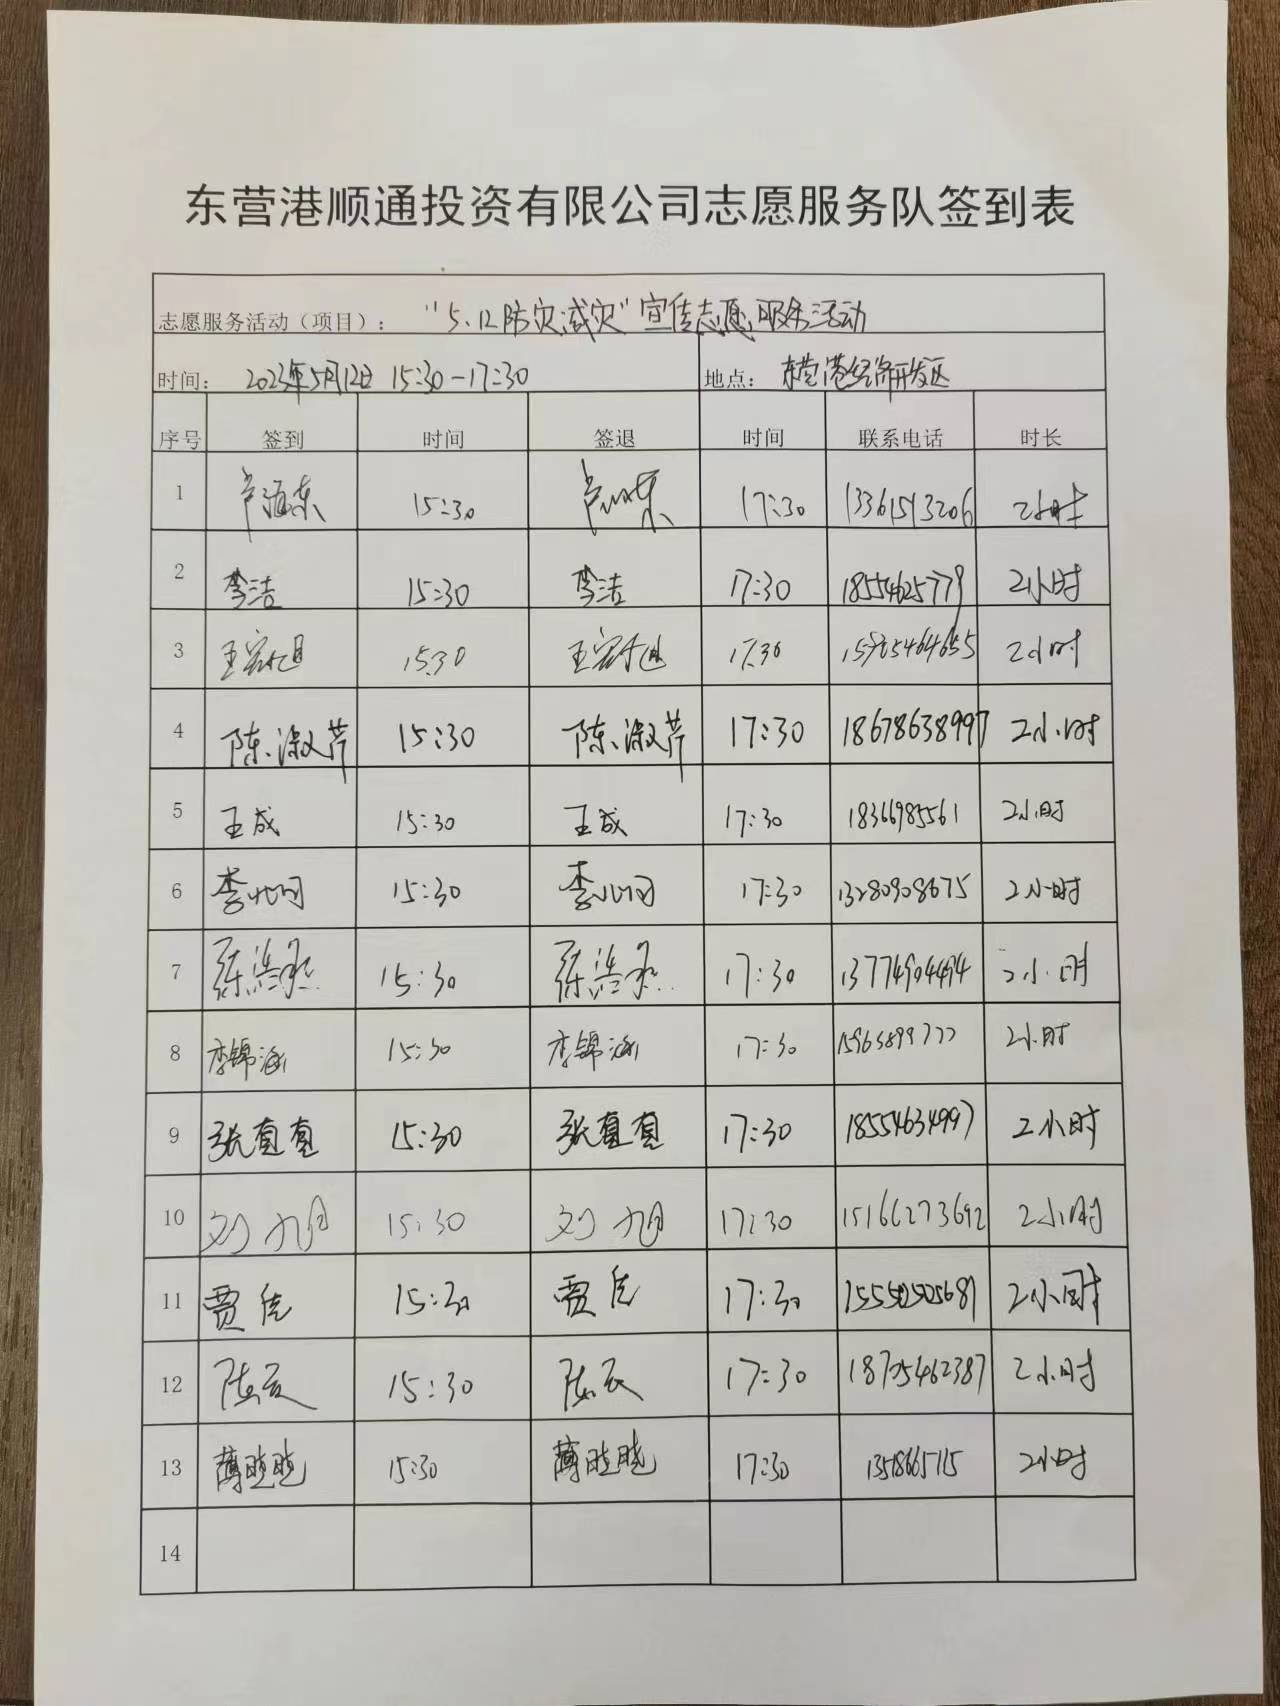 东营港顺通投资有限公司志愿服务队签到表
志愿服务活动（项目）： “5.12防灾减灾”宣传志愿服务活动
时间： 2023年5月12日 15:30-17:30 地点： 东营港经济开发区
序号 签到 时间 签退 时间 联系电话 时长
1 15:30 17:30 13361513206 2小时
2 李洁 15:30 李洁 17:30 18554625779 2小时
3 王 15:30 王 17:30 2小时
4 陈淑芹 15:30 陈淑芹 17:30 18678638997 2小时
5 王成 15:30 王成 17:30 18366985561 2小时
6 李 15:30 李 17:30 13280908675 2小时
7 15:30 17:30 13774904494 2小时
8 李锦涵 15:30 李锦涵 17:30 2小时
9 张真真 15:30 张真真 17:30 18554634997 2小时
10 刘旭 15:30 刘旭 17:30 15166273692 2小时
11 贾 15:30 贾 17:30 2小时
12 陈 15:30 陈 17:30 2小时
13 薄晓晓 15:30 薄晓晓 17:30 2小时
14